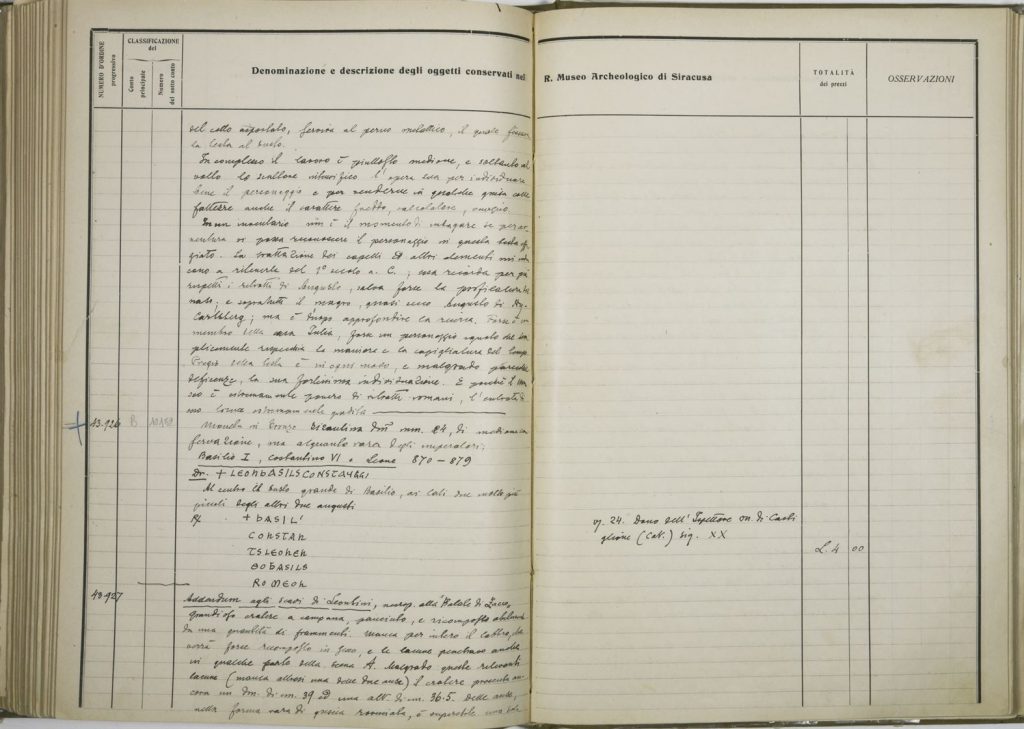 NUMERO D'ORDINE
progressivo
CLASSIFICAZIONE
del
Conto
principale
Numero
del sotto conto
Denominazione e descrizione degli oggetti conservati nel R. Museo Archeologico di Siracusa
TOTALITÀ
dei prezzi
OSSERVAZIONI
del collo asportato, ferviva al perno metallico, il quale
la testa al busto.
In complesso il lavoro è piuttosto mediocre, e soltanto al
volto lo scultore l'opera sua per individuare
bene il personaggio e per renderne in qualche guisa colle
fattezze anche il carattere freddo, calcolatore,
In un inventario non è il momento di indagare se per av
ventura si possa riconoscere il personaggio in questa testa effi
giato. La trattazione dei capelli ed altri elementi mi indu
cono a ritenerla del 1º secolo a. C.; essa ricorda per più
rispetti i ritratti di Augusto, salvo forse la
naso; e sopratutto il magro, quasi Augusto di Ny-
Carlsberg; ma è d'uopo approfondire la ricerca. Forse è un
membro della casa Julia, forse un personaggio ignoto che sem
plicemente rispecchia la maniera e la capigliatura del tempo.
Pregio della testa è in ogni modo, e malgrado parecchie
deficienze, la sua fortissima individuazione. E poichè il Mu
seo è estremamente povero di ritratti romani, l'entrata di
esso estremamente gradita
43.926 B
Moneta in bronzo bizantina Dm mm. 24, di mediocre con
servazione, ma alquanto rara degli imperatori:
Basilio I, Costantino VI e Leone 870 - 879
Dr. + LEONBASILSCONSTAYGGI
Al centro il busto grande di Basilio, ai lati due molto più
piccoli degli altri due augusti
℞ + BASIL'
CONSTAN
TSLEONEN
ΘOBASILS
ROMEON
vj. 24. Dono dell'Ispettore on. di Casti
glione (Cat.) sig. XX
L. 4 00
43.927
Addendum agli scavi di Leontini,
Grandioso cratere a campana, panciuto, e ricomposto abilmente
da una quantità di frammenti. Manca per intero il labbro, che
verrà forse ricomposto in gesso, e le lacune anche
in qualche parte della scena A. Malgrado queste rilevanti
lacune (manca altresì una delle due anse) il cratere presenta an
cora un dm. di cm. 39 ed una alt. di cm. 36.5. Delle anse,
nella forma rara di, è superstite una sola